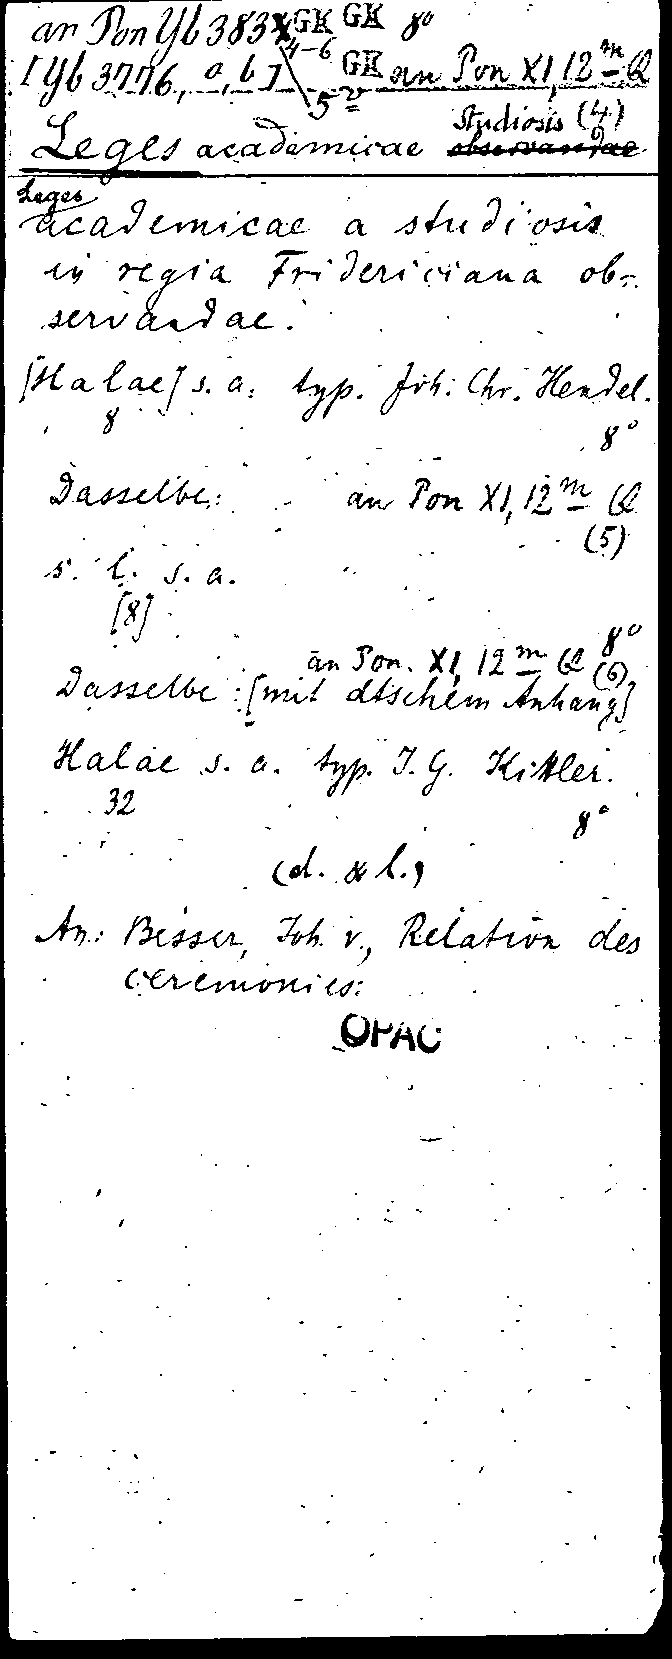 an Pon Yb 383x GK GK 8°
4-6
[Yb 3776, a, b] GK an Pon XI, 12 m Q
5 v
studiosis (4)
Leges academicae observandae
Leges
academicae a studiosis
in regia Fridericiana ob-
servandae.
[Halae] s. a. typ. Joh. Chr. Hendel.
8
8°
Dasselbe: an Pon XI, 12 m Q
(5)
s. l. s. a.
[8]
8°
an Pon. XI, 12 m Q (6)
Dasselbe: [mit dtschem Anhang]
Halae s. a. typ. J. G. Kittler.
32
8°
(d. & l.)
An: Besser, Joh. v., Relation des
ceremonies:
OPAC